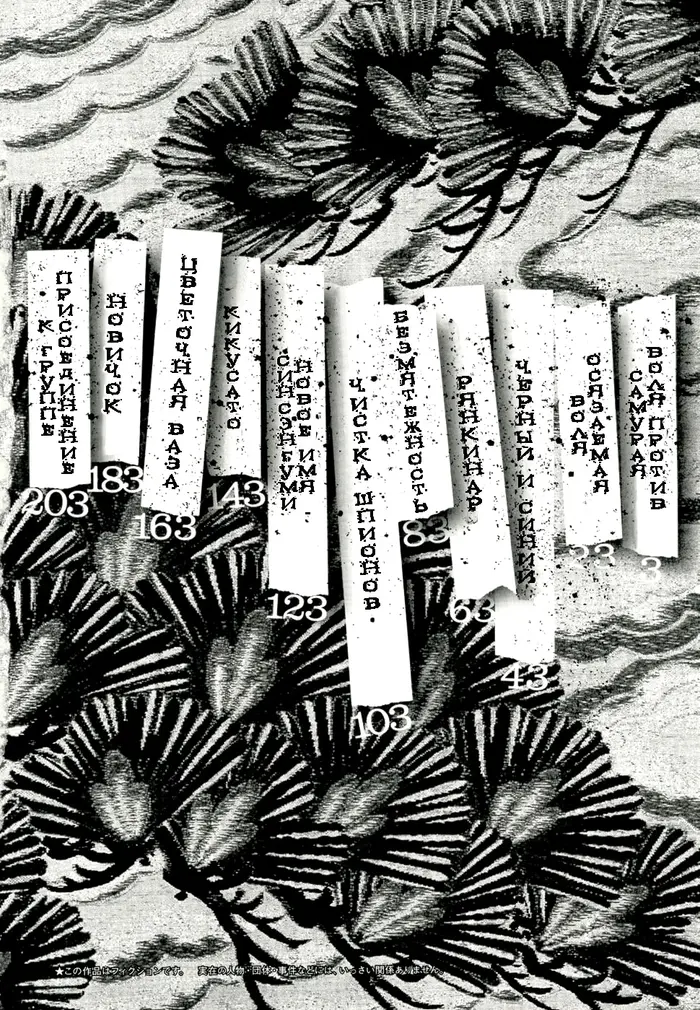 ВОЛЯ ПРОТИВ
САМУРАЯ
3
ОСЯЗАЕМАЯ
ВОЛЯ
23
ЧЕРНЫЙ И СИНИЙ
43
РЯНКИНАР
63
БЕЗМЯТЕЖНОСТЬ
83
ЧИСТКА ШПИОНОВ.
103
НОВОЕ ИМЯ
СИНСЭНГУМИ
123
КИКУСАТО
143
ЦВЕТОЧНАЯ ВАЗА
163
НОВИЧОК
183
ПРИСОЕДИНЕНИЕ
К ГРУППЕ
203
★この作品はフィクションです。 実在の人物・団体・事件などには、いっさい関係ありません。